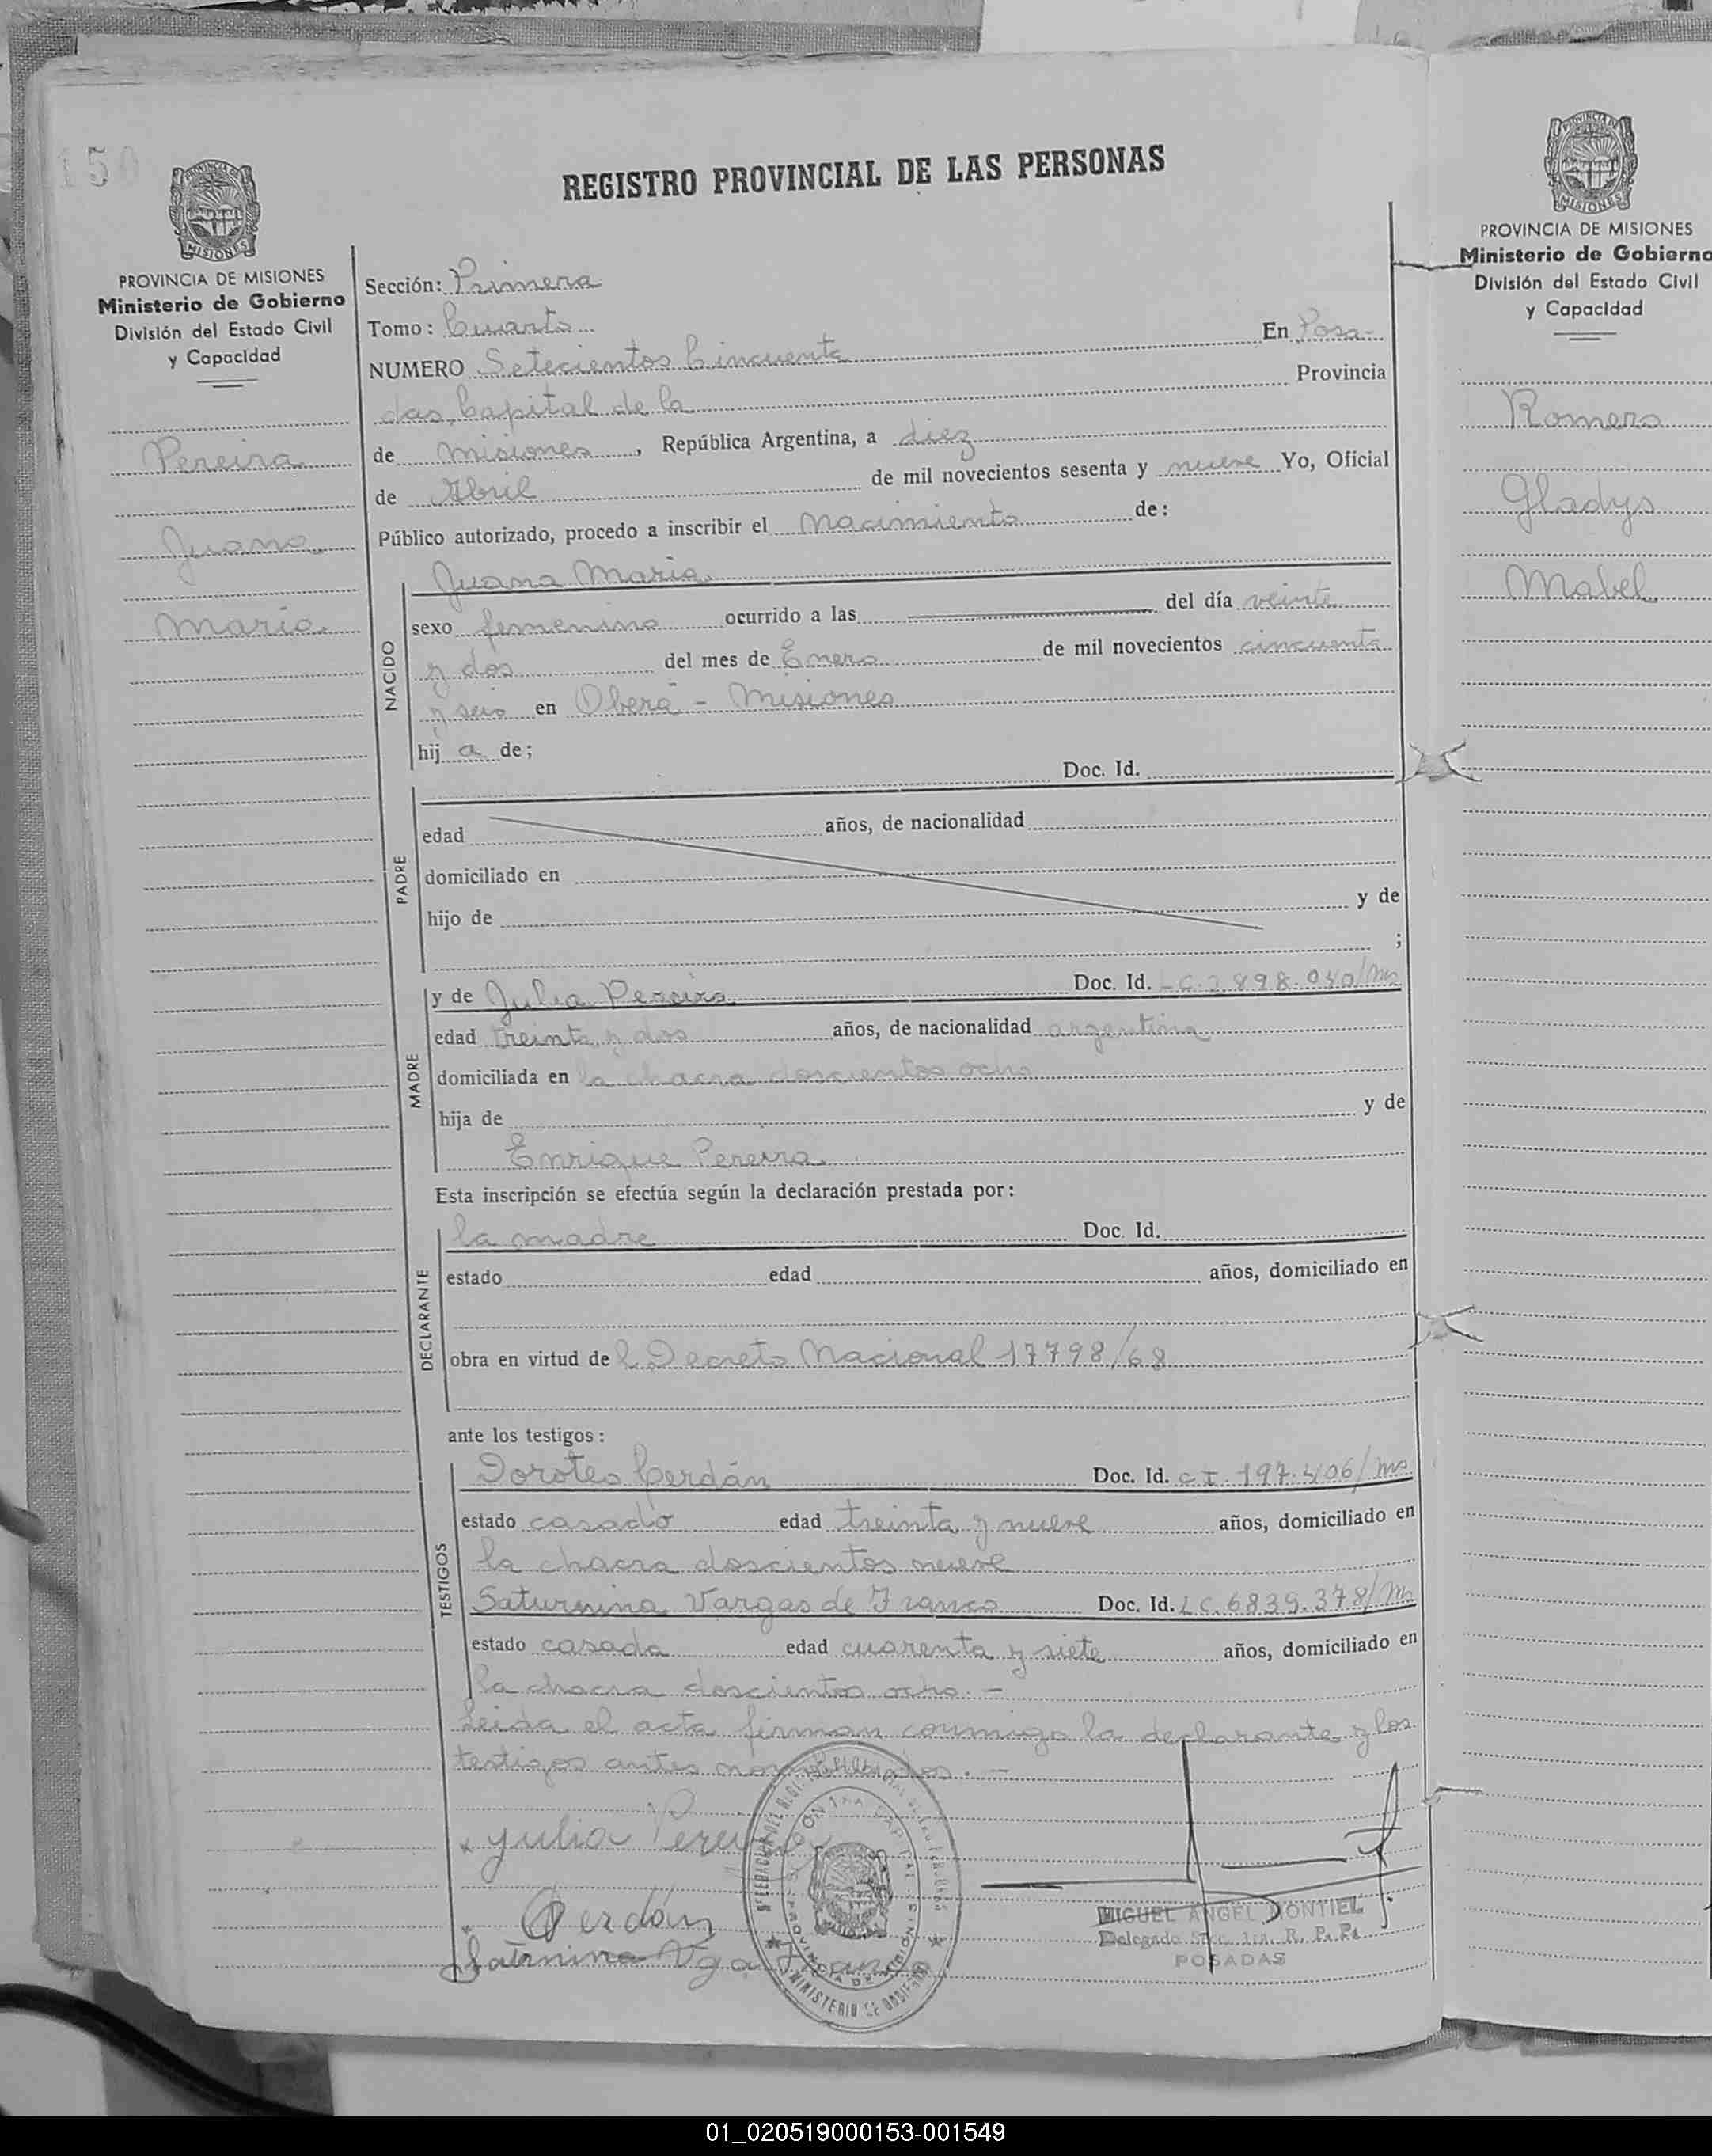 150
REGISTRO PROVINCIAL DE LAS PERSONAS
MISIONES
PROVINCIA DE MISIONES
Ministerio de Gobierno
División del Estado Civil
y Capacidad
Pereira
Juana
Maria
Sección: Primera
Tomo: Cuarto
NUMERO Setecientos Cincuenta En Posa-
das, Capital de la Provincia
de Misiones, República Argentina, a diez
de Abril de mil novecientos sesenta y nueve Yo, Oficial
Público autorizado, procedo a inscribir el Nacimiento de:
NACIDO
Juana Maria
sexo femenino ocurrido a las del día veinte
y dos del mes de Enero de mil novecientos cincuenta
y seis en Oberá - Misiones
hij a de;
PADRE
Doc. Id.
edad años, de nacionalidad
domiciliado en
hijo de y de
;
MADRE
y de Julia Pereira Doc. Id. LC. 2.898.040/Ms
edad treinta y dos años, de nacionalidad argentina
domiciliada en la chacra doscientos ocho
hija de y de
Enrique Pereira
Esta inscripción se efectúa según la declaración prestada por:
DECLARANTE
la madre Doc. Id.
estado edad años, domiciliado en
obra en virtud de l Decreto Nacional 17798/68
ante los testigos:
TESTIGOS
Doroteo Cerdán Doc. Id. C.I. 197.406/Ms
estado casado edad treinta y nueve años, domiciliado en
la chacra doscientos nueve
Saturnina Vargas de Franco Doc. Id. LC. 6839.378/Ms
estado casada edad cuarenta y siete años, domiciliado en
la chacra doscientos ocho. -
Leida el acta, firman conmigo la declarante y los
testigos antes nombrados. -
Julia Pereira
Cerdán
Satrnina Vga Franco
MINISTERIO DE GOBIERNO
MIGUEL ANGEL MONTIEL
Delegado Secc. 1ra. R. P. Ps.
POSADAS
MISIONES
PROVINCIA DE MISIONES
Ministerio de Gobierno
División del Estado Civil
y Capacidad
Romero
Gladys
Mabel
01_020519000153-001549